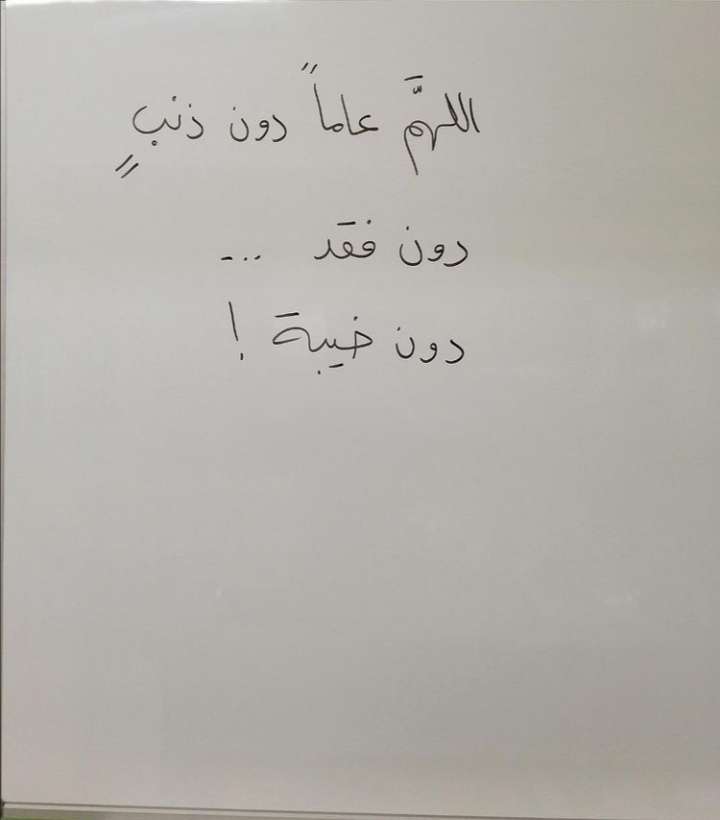 اللهمَّ عاماً دون ذنبٍ
دون فقد ...
دون خيبة !